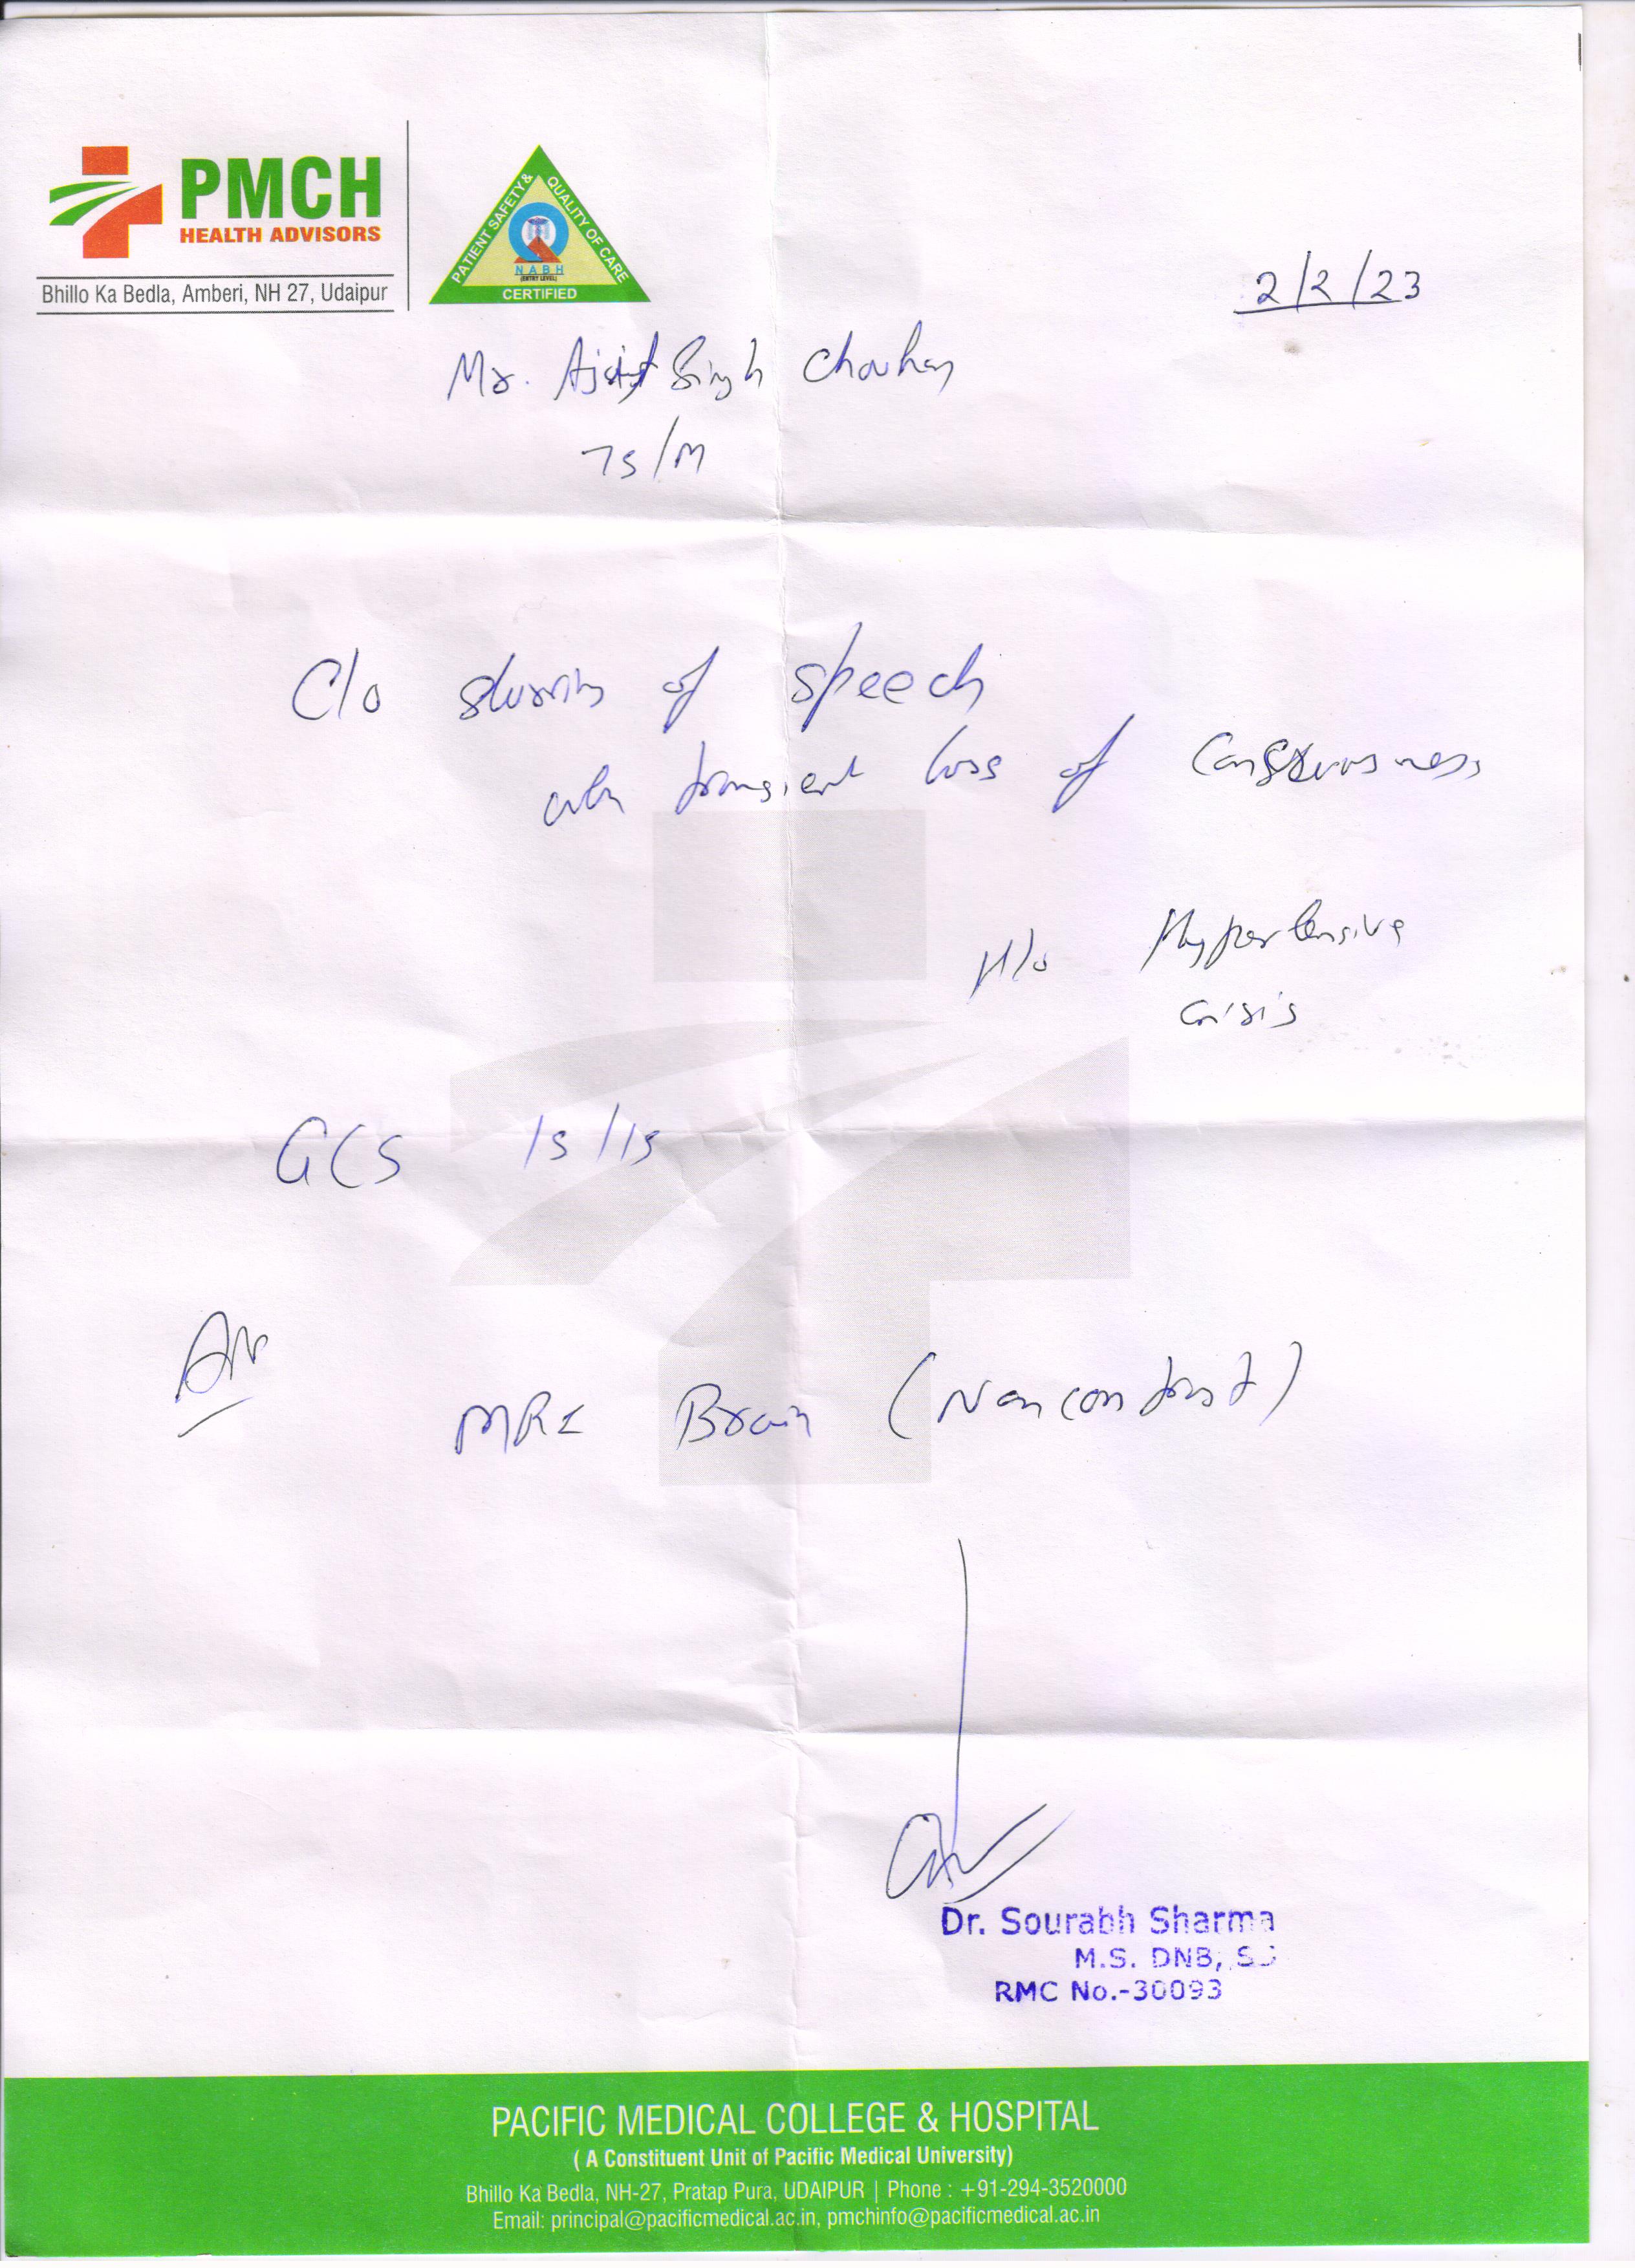 PMCH
HEALTH ADVISORS
Bhillo Ka Bedla, Amberi, NH 27, Udaipur
PATIENT SAFETY & QUALITY OF CARE
NABH
(ENTRY LEVEL)
CERTIFIED
2/2/23
Mr. Singh Chouhan
75/M
C/o slurring of speech
transient loss of Consciousness
H/o Hypertensive
crisis
GCS 15/15
MRI Brain (Non contrast)
Dr. Sourabh Sharma
M.S. DNB,
RMC No.-30093
PACIFIC MEDICAL COLLEGE & HOSPITAL
( A Constituent Unit of Pacific Medical University)
Bhillo Ka Bedla, NH-27, Pratap Pura, UDAIPUR | Phone : +91-294-3520000
Email: principal@pacificmedical.ac.in, pmchinfo@pacificmedical.ac.in